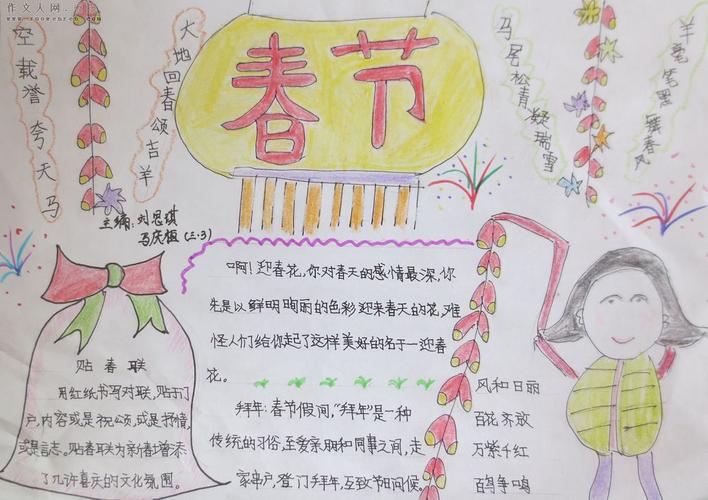 作文人网
空载誉夸天马
大地回春颂吉羊
春节
马居松青凝瑞雪
羊毫笔墨春风
主编:刘思琪
(三.3)
啊!迎春花,你对春天的感情最深,你
先是以鲜明绚丽的色彩迎来春天的花,难
怪人们给你起了这样美好的名于一迎春
花。
贴春联
用红纸书写对联,贴于门
户,内容或是祝颂,或是抒情,
或是言志。贴春联为新春增添
了几许喜庆的文化氛围。
拜年:春节假间,"拜年"是一种
传统的习俗,至爱亲朋和同事之间,走
家串户,登门拜年,互致节间问候。
风和日丽
百花齐放
万紫千红
百鸟争鸣